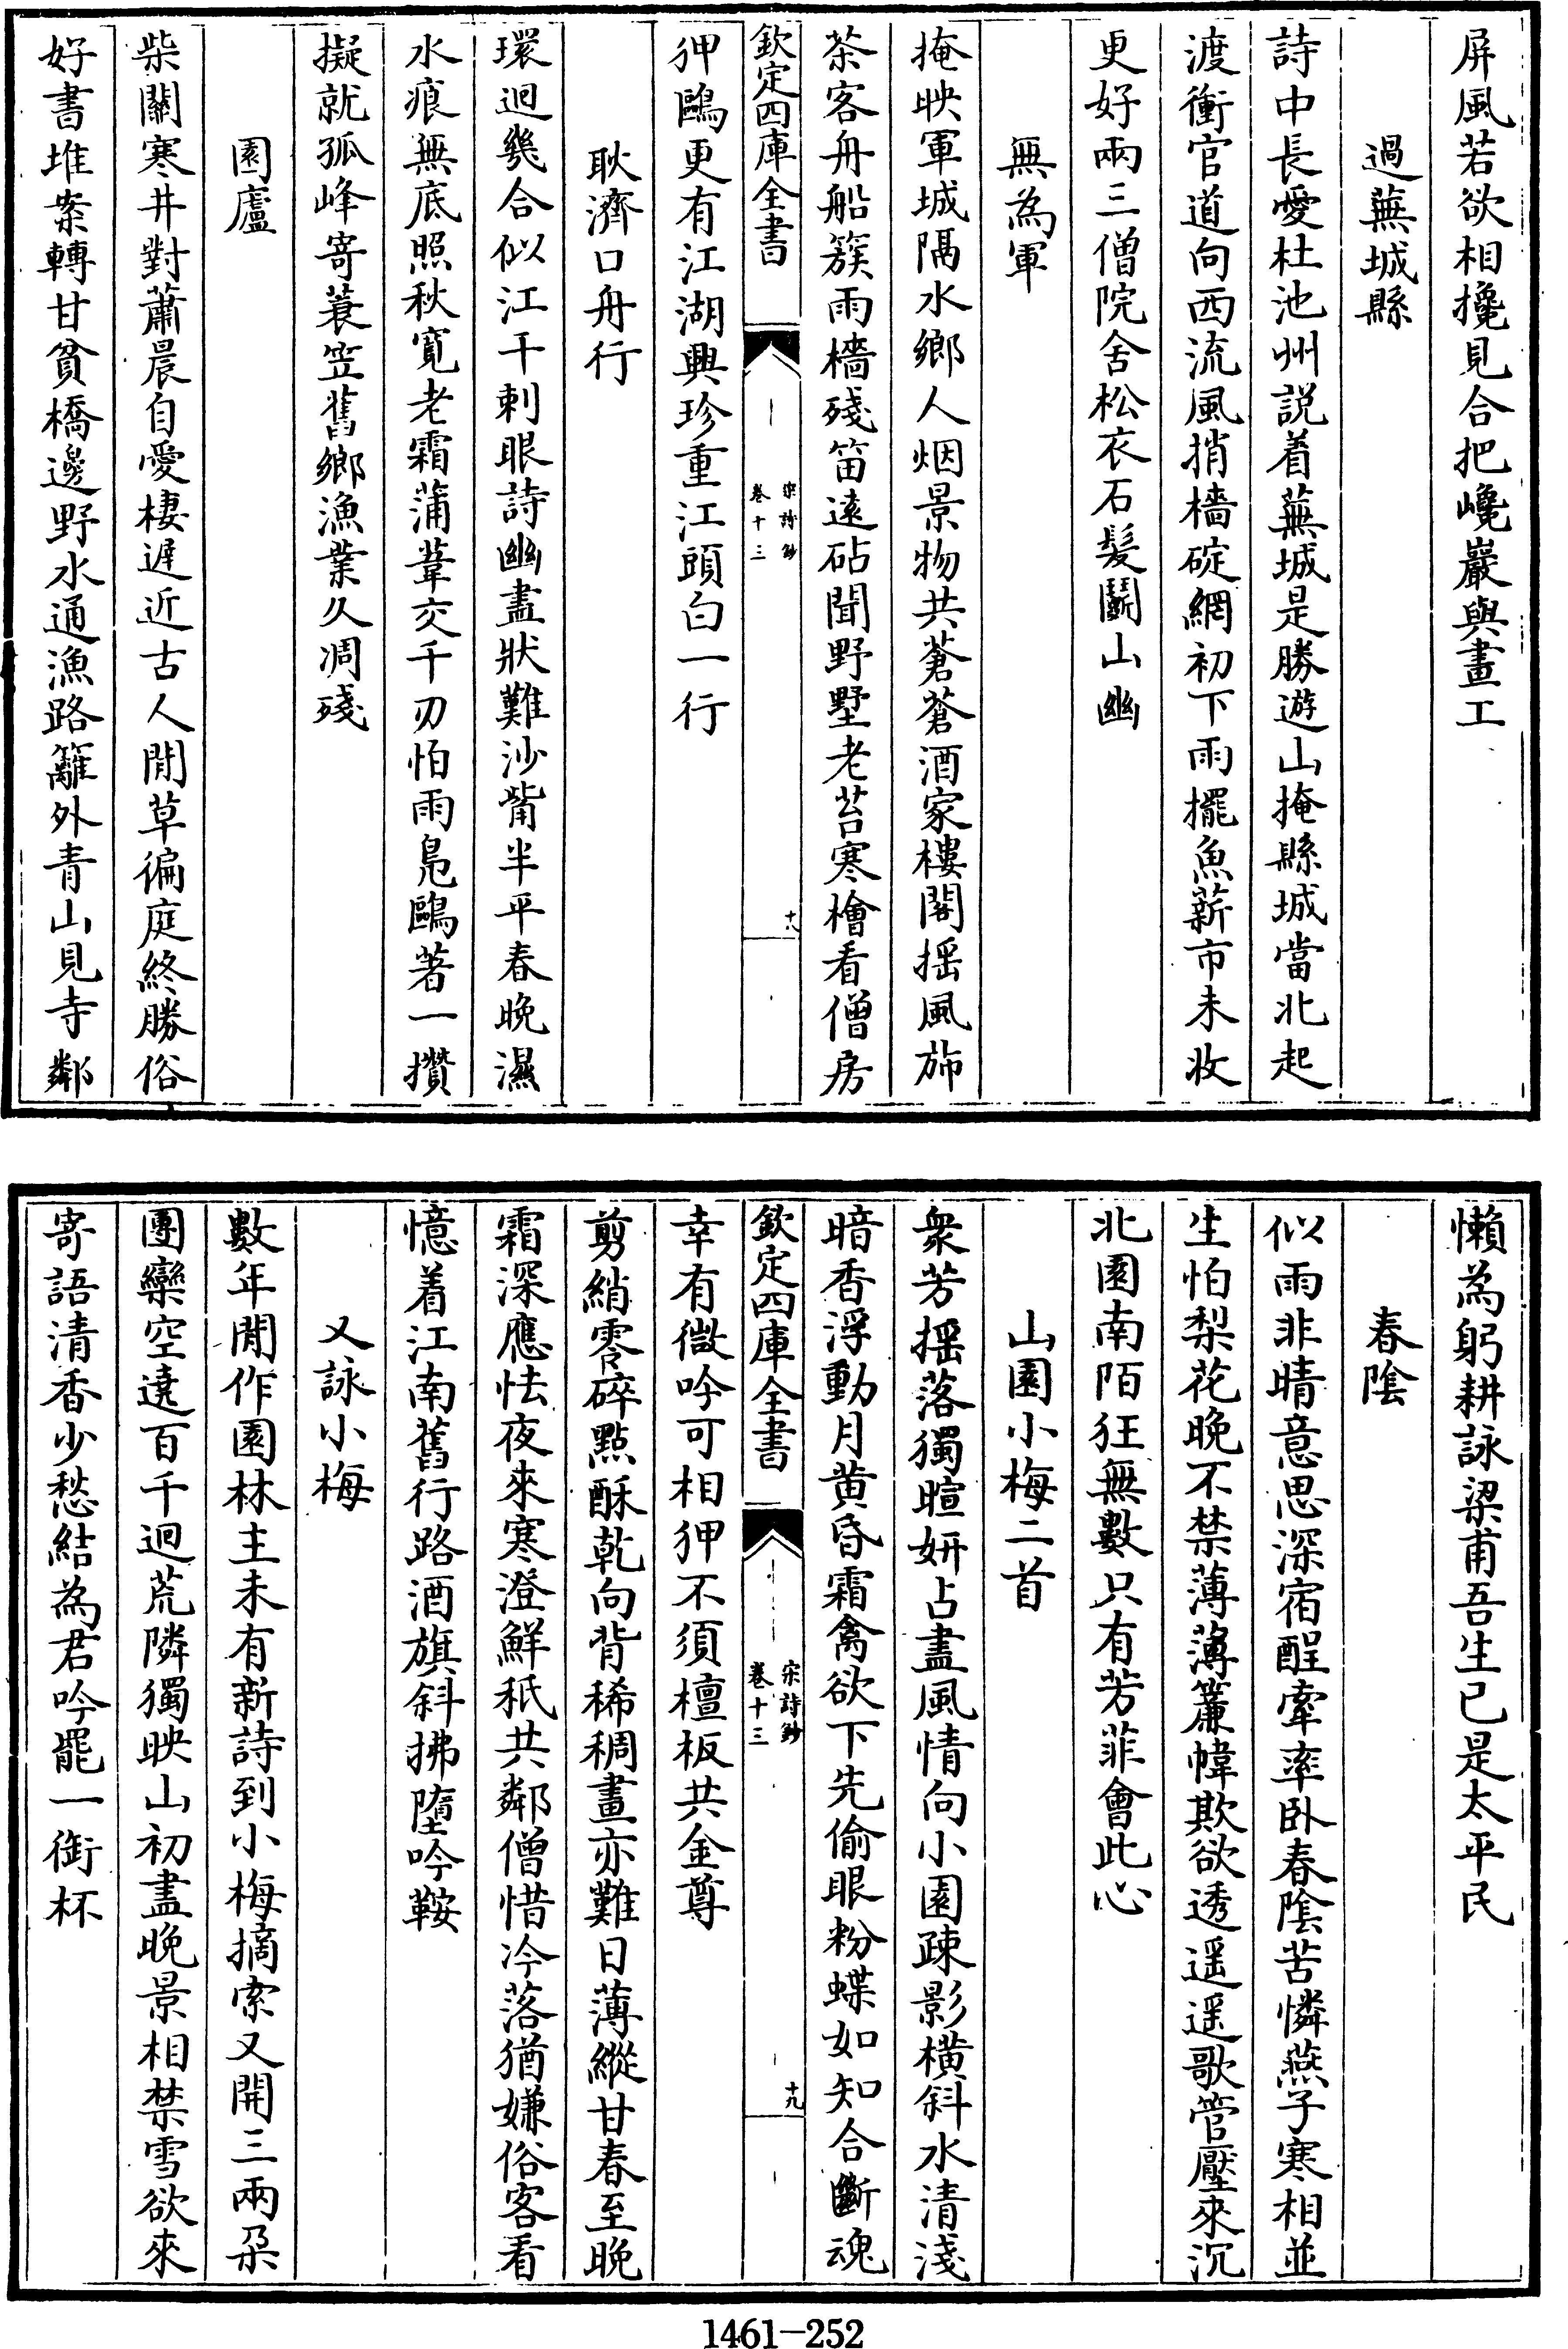 屏風若欲相攙見合把巉巖與畫工
過蕪城縣
詩中長愛杜池州説着蕪城是勝遊山掩縣城當北起
渡衝官道向西流風捎檣碇網初下雨擺魚薪市未收
更好兩三僧院舍松衣石髮鬭山幽
無為軍
掩映軍城隔水鄉人烟景物共蒼蒼酒家樓閣揺風斾
茶客舟船簇雨檣殘笛逺砧聞野墅老苔寒檜看僧房
欽定四庫全書
宋詩鈔
卷十三
十八
狎鷗更有江湖興珍重江頭白一行
耿濟口舟行
環迴幾合似江干刺眼詩幽盡狀難沙觜半平春晚濕
水痕無底照秋寛老霜蒲葦交千刃怕雨鳬鷗著一攢
擬就孤峰寄蓑笠舊鄉漁業久凋殘
園廬
柴關寒井對蕭晨自愛棲遲近古人閒草徧庭終勝俗
好書堆案轉甘貧橋邊野水通漁路籬外青山見寺鄰
懶為躬耕詠梁甫吾生已是太平民
春隂
似雨非晴意思深宿酲牽率卧春隂苦憐燕子寒相並
生怕梨花晚不禁薄薄簾幃欺欲透遥遥歌管壓來沉
北園南陌狂無數只有芳菲會此心
山園小梅二首
衆芳揺落獨暄妍占盡風情向小園疎影橫斜水清淺
暗香浮動月黄昏霜禽欲下先偷眼粉蝶如知合斷魂
欽定四庫全書
宋詩鈔
卷十三
十九
幸有微吟可相狎不須檀板共金尊
剪綃零碎點酥乾向背稀稠畫亦難日薄縱甘春至晚
霜深應怯夜來寒澄鮮秖共鄰僧惜冷落猶嫌俗客看
憶着江南舊行路酒旗斜拂墮吟鞍
又詠小梅
數年閒作園林主未有新詩到小梅摘索又開三兩朶
團欒空遶百千迴荒隣獨映山初盡晚景相禁雪欲來
寄語清香少愁結為君吟罷一銜杯
1461-252